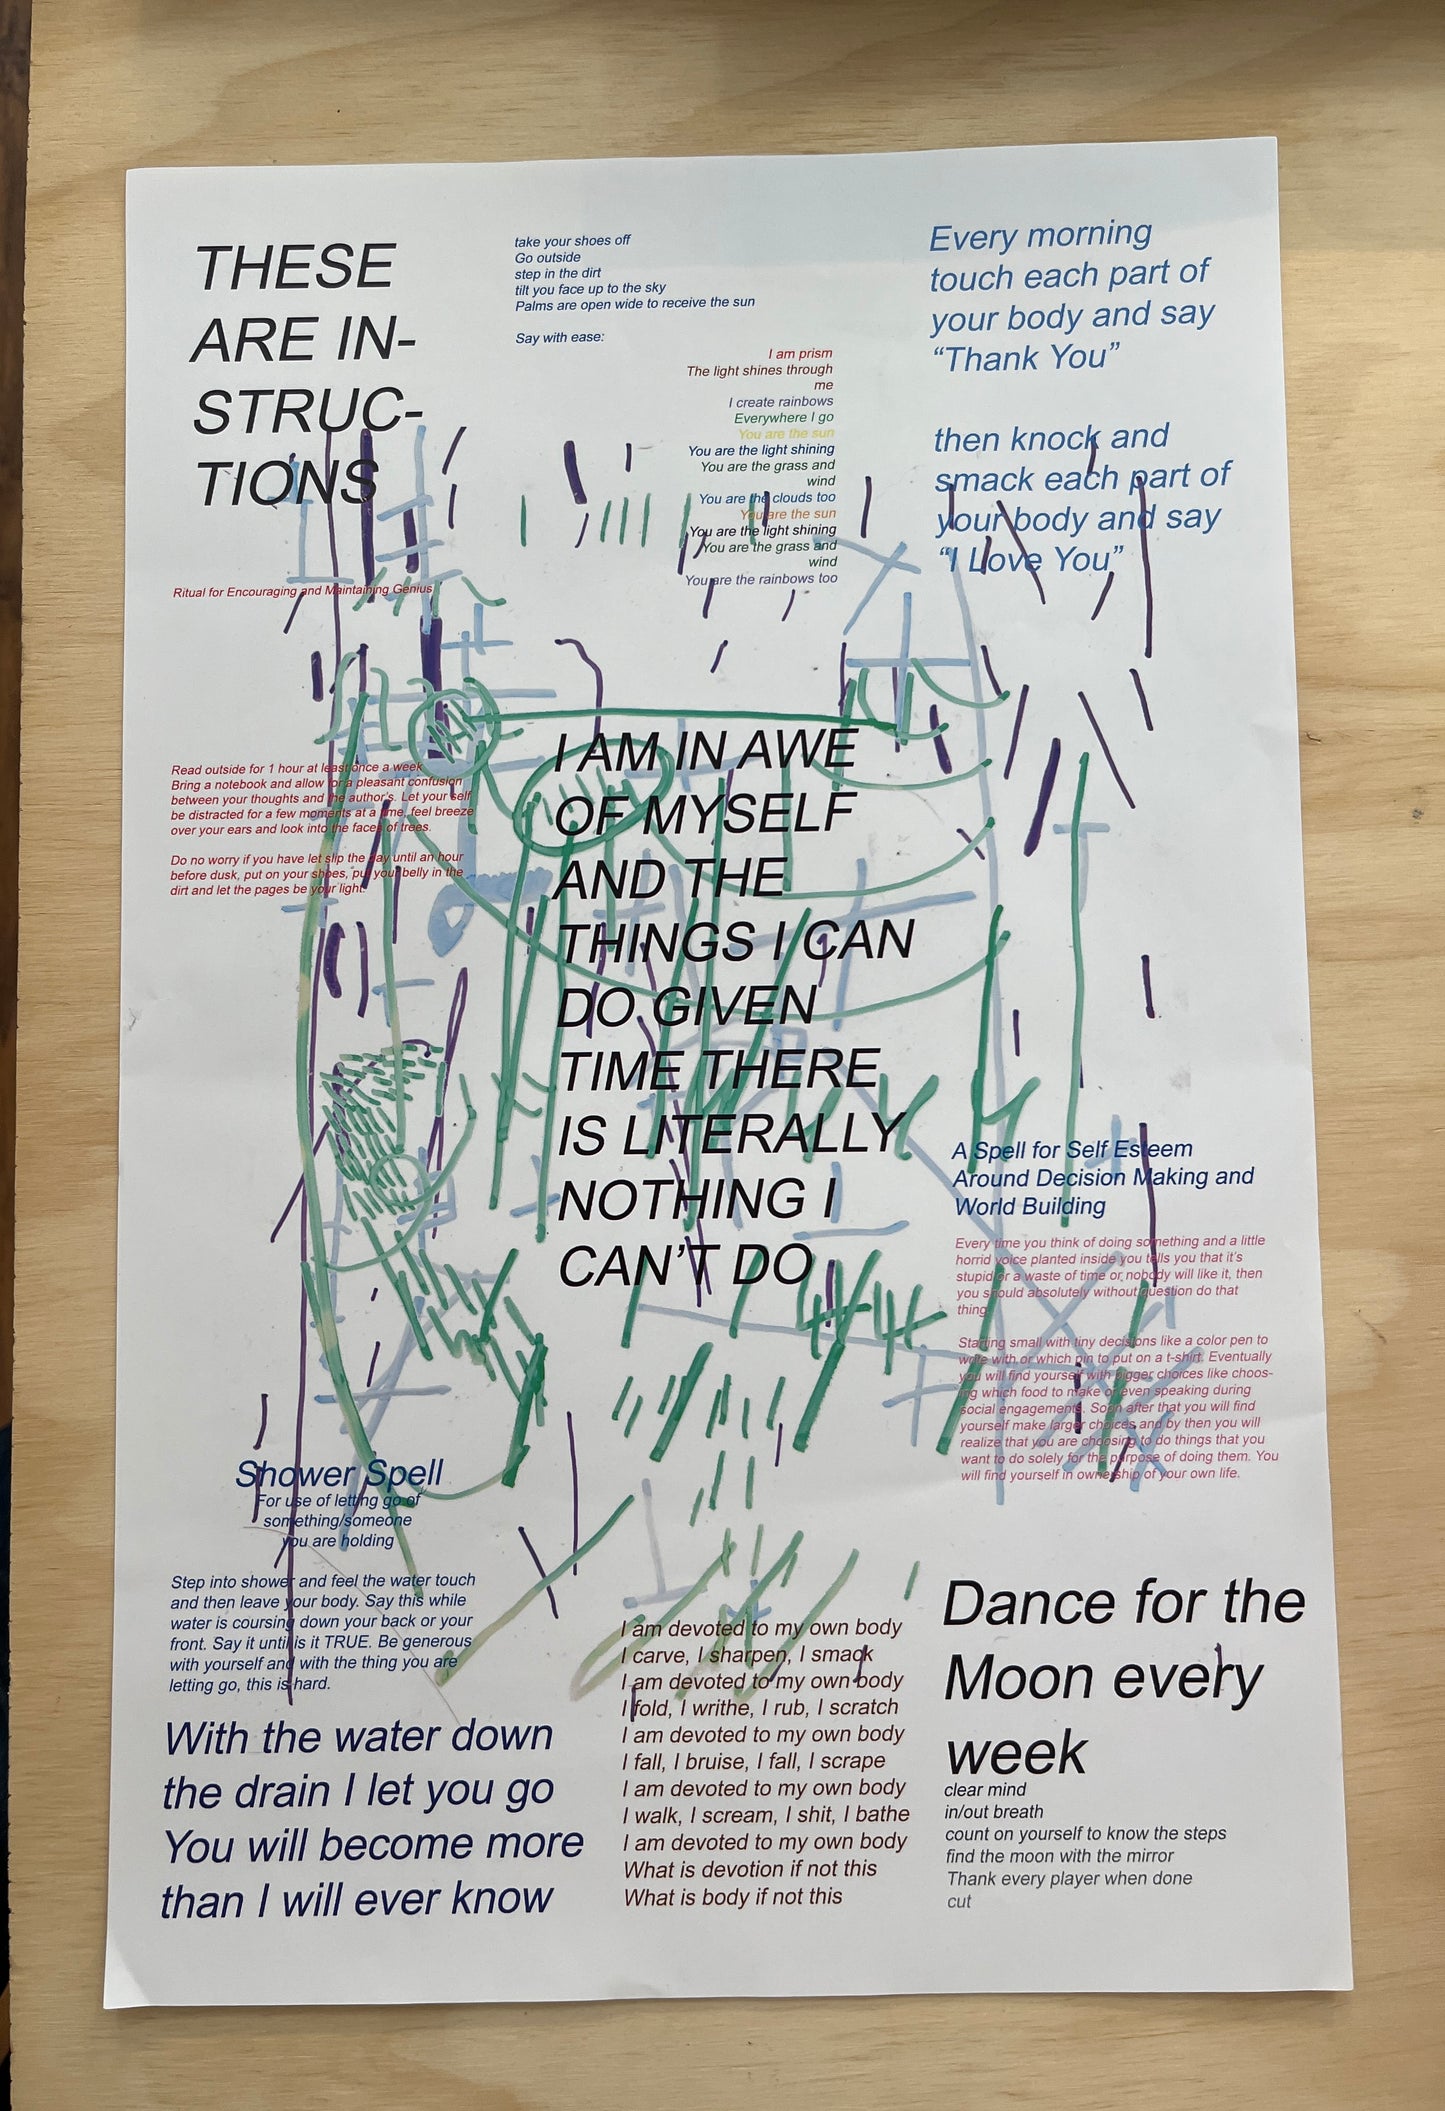 THESE
ARE IN-
STRUC-
TIONS
take your shoes off
Go outside
step in the dirt
tilt you face up to the sky
Palms are open wide to receive the sun
Say with ease:
I am prism
The light shines through
me
I create rainbows
Everywhere I go
You are the sun
You are the light shining
You are the grass and
wind
You are the clouds too
You are the sun
You are the light shining
You are the grass and
wind
You are the rainbows too
Every morning
touch each part of
your body and say
“Thank You”
then knock and
smack each part of
your body and say
“I Love You”
Ritual for Encouraging and Maintaining Genius
Read outside for 1 hour at least once a week
Bring a notebook and allow for a pleasant confusion
between your thoughts and the author's. Let your self
be distracted for a few moments at a time, feel breeze
over your ears and look into the faces of trees.
Do no worry if you have let slip the day until an hour
before dusk, put on your shoes, put your belly in the
dirt and let the pages be your light.
I AM IN AWE
OF MYSELF
AND THE
THINGS I CAN
DO GIVEN
TIME THERE
IS LITERALLY
NOTHING I
CAN'T DO
A Spell for Self Esteem
Around Decision Making and
World Building
Every time you think of doing something and a little
horrid voice planted inside you tells you that it's
stupid or a waste of time or nobody will like it, then
you should absolutely without question do that
thing.
Starting small with tiny decisions like a color pen to
write with or which pin to put on a t-shirt. Eventually
you will find yourself with bigger choices like choos-
ing which food to make or even speaking during
social engagements. Soon after that you will find
yourself make larger choices and by then you will
realize that you are choosing to do things that you
want to do solely for the purpose of doing them. You
will find yourself in ownership of your own life.
Shower Spell
For use of letting go of
something/someone
you are holding
Step into shower and feel the water touch
and then leave your body. Say this while
water is coursing down your back or your
front. Say it until is it TRUE. Be generous
with yourself and with the thing you are
letting go, this is hard.
With the water down
the drain I let you go
You will become more
than I will ever know
I am devoted to my own body
I carve, I sharpen, I smack
I am devoted to my own body
I fold, I writhe, I rub, I scratch
I am devoted to my own body
I fall, I bruise, I fall, I scrape
I am devoted to my own body
I walk, I scream, I shit, I bathe
I am devoted to my own body
What is devotion if not this
What is body if not this
Dance for the
Moon every
week
clear mind
in/out breath
count on yourself to know the steps
find the moon with the mirror
Thank every player when done
cut